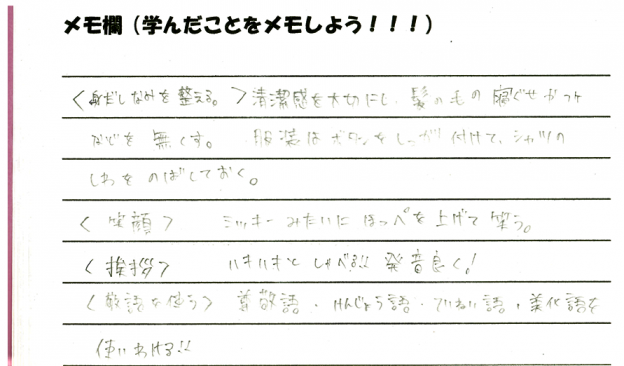 メモ欄（学んだことをメモしよう！！！）
〈身だしなみを整える。〉清潔感を大切にし、髪の毛の寝ぐせやフケ
などを無くす。 服装はボタンをしっかり付けて、シャツの
しわをのばしておく。
〈笑顔〉 ミッキーみたいにほっぺを上げて笑う。
〈挨拶〉 ハキハキとしゃべる!! 発音良く!
〈敬語を使う〉 尊敬語・けんじょう語・ていねい語・美化語を
使いわける!!